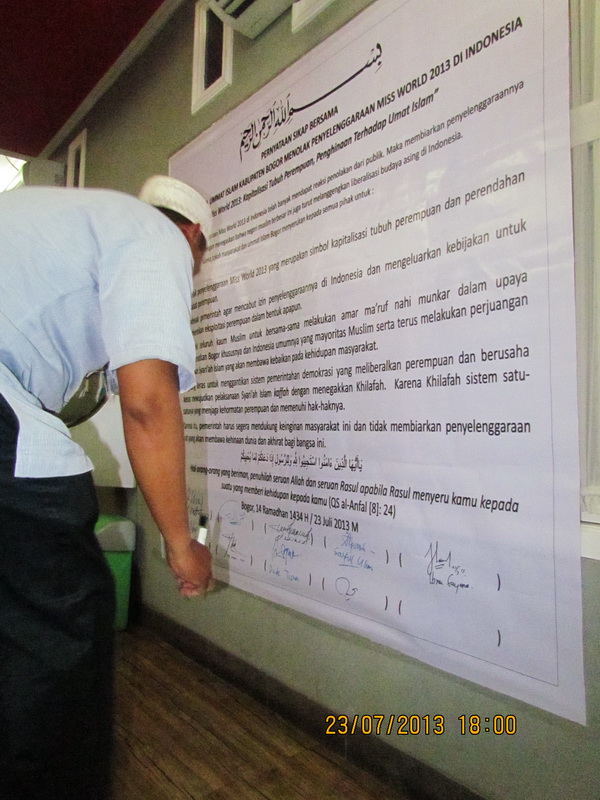 بسم الله الرحمن الرحيم
PERNYATAAN SIKAP BERSAMA
UMMAT ISLAM KABUPATEN BOGOR MENOLAK PENYELENGGARAAN MISS WORLD 2013 DI INDONESIA
World 2013: Kapitalisasi Tubuh Perempuan, Penghinaan Terhadap Umat Islam"
World 2013 di Indonesia telah banyak mendapat reaksi penolakan dari publik. Maka membiarkan penyelenggaraannya
bahwa negeri muslim terbesar ini juga turut melanggengkan liberalisasi budaya asing di Indonesia.
ummat Islam Bogor menyerukan kepada semua pihak untuk :
penyelenggaraan Miss World 2013 yang merupakan simbol kapitalisasi tubuh perempuan dan perendahan
perempuan.
pemerintah agar mencabut icin penyelenggaraannya di Indonesia dan mengeluarkan kebijakan untuk
eksploitasi perempuan dalam bentuk apapun.
seluruh kaum Muslim untuk bersama-sama melakukan amar ma'ruf nahi munkar dalam upaya
Bogor khususnya dan Indonesia umumnya yang mayoritas Muslim serta terus melakukan perjuangan
Syari'ah Islam yang akan membawa kebaikan pada kehidupan masyarakat.
keras untuk menggantikan sistem pemerintahan demokrasi yang meliberalkan perempuan dan berusaha
mewujudkan pelaksanaan Syari'ah Islam kaffah dengan menegakkan Khilafah. Karena Khilafah sistem satu-
satunya yang menjaga kehormatan perempuan dan memenuhi hak-haknya.
itu, pemerintah harus segera mendukung keinginan masyarakat ini dan tidak membiarkan penyelenggaraan
yang akan membawa kehinaan dunia dan akhirat bagi bangsa ini.
يَاأَيُّهَا الَّذِينَ ءَامَنُوا اسْتَجِيبُوا لِلَّهِ وَلِلرَّسُولِ إِذَا دَعَاكُمْ لِمَا يُحْيِيكُمْ
Hai orang-orang yang beriman, penuhilah seruan Allah dan seruan Rasul apabila Rasul menyeru kamu kepada
suatu yang memberi kehidupan kepada kamu (QS al-Anfal [8]: 24)
Bogor, 14 Ramadhan 1434 H / 23 Juli 2013 M
23/07/2013 18:00